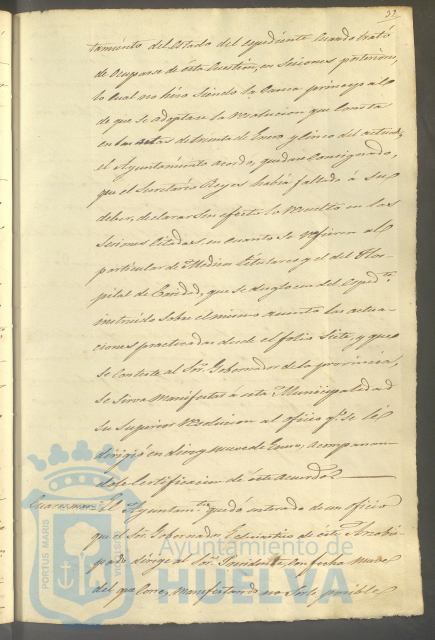 32
tamiento del estado del espediente cuando trató
de ocuparse de esta cuestion, en sesiones posteriores,
lo cual no hizo siendo la causa principal
de que se adoptase la resolucion que consta
en las actas de treinta de Enero y cinco del actual;
el Ayuntamiento acordó, quedase consignado,
que el Secretario Reyes habia faltado á su
deber, declarar sin efecto lo resuelto en las
sesiones citadas, en cuanto se refieren al
particular de Medicos titulares y el del Hos-
pital de Caridad, que se desglocen del esped.te
instruido sobre el mismo asunto las actua-
ciones practicadas desde el folio siete, y que
se conteste al Sor. Gobernador de la provincia,
se sirva manifestar á esta Municipalidad
su superior resolucion al oficio q.e se le
dirigió en diez y nueve de Enero, acompañan-
dole certificacion de este acuerdo.
El Ayuntam.to quedó enterado de un oficio
que el Sor. Gobernador Eclesiastico de este Arzobis-
pado dirige al Sor. Presidente, con fecha nueve
del que corre, manifestando no serle posible
PORTUS MARIS
Ayuntamiento de
HUELVA